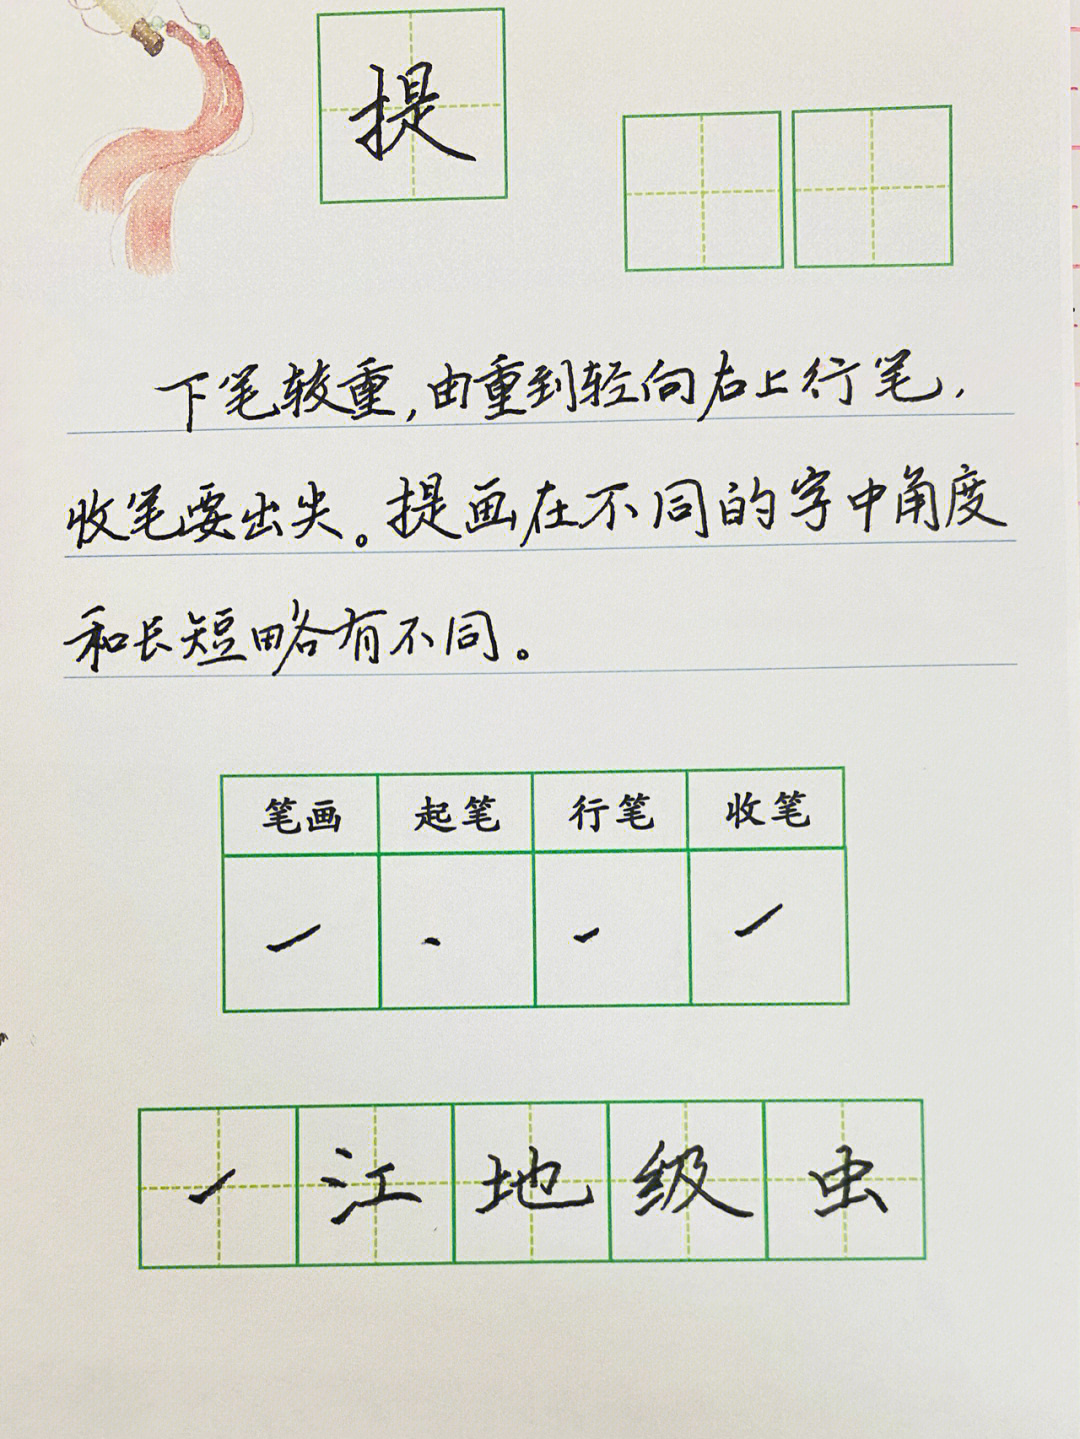 提
下笔较重,由重到轻向右上行笔,
收笔要出尖。提画在不同的字中角度
和长短略有不同。
笔画 起笔 行笔 收笔
㇀ ㇀ ㇀ ㇀
㇀ 江 地 级 虫